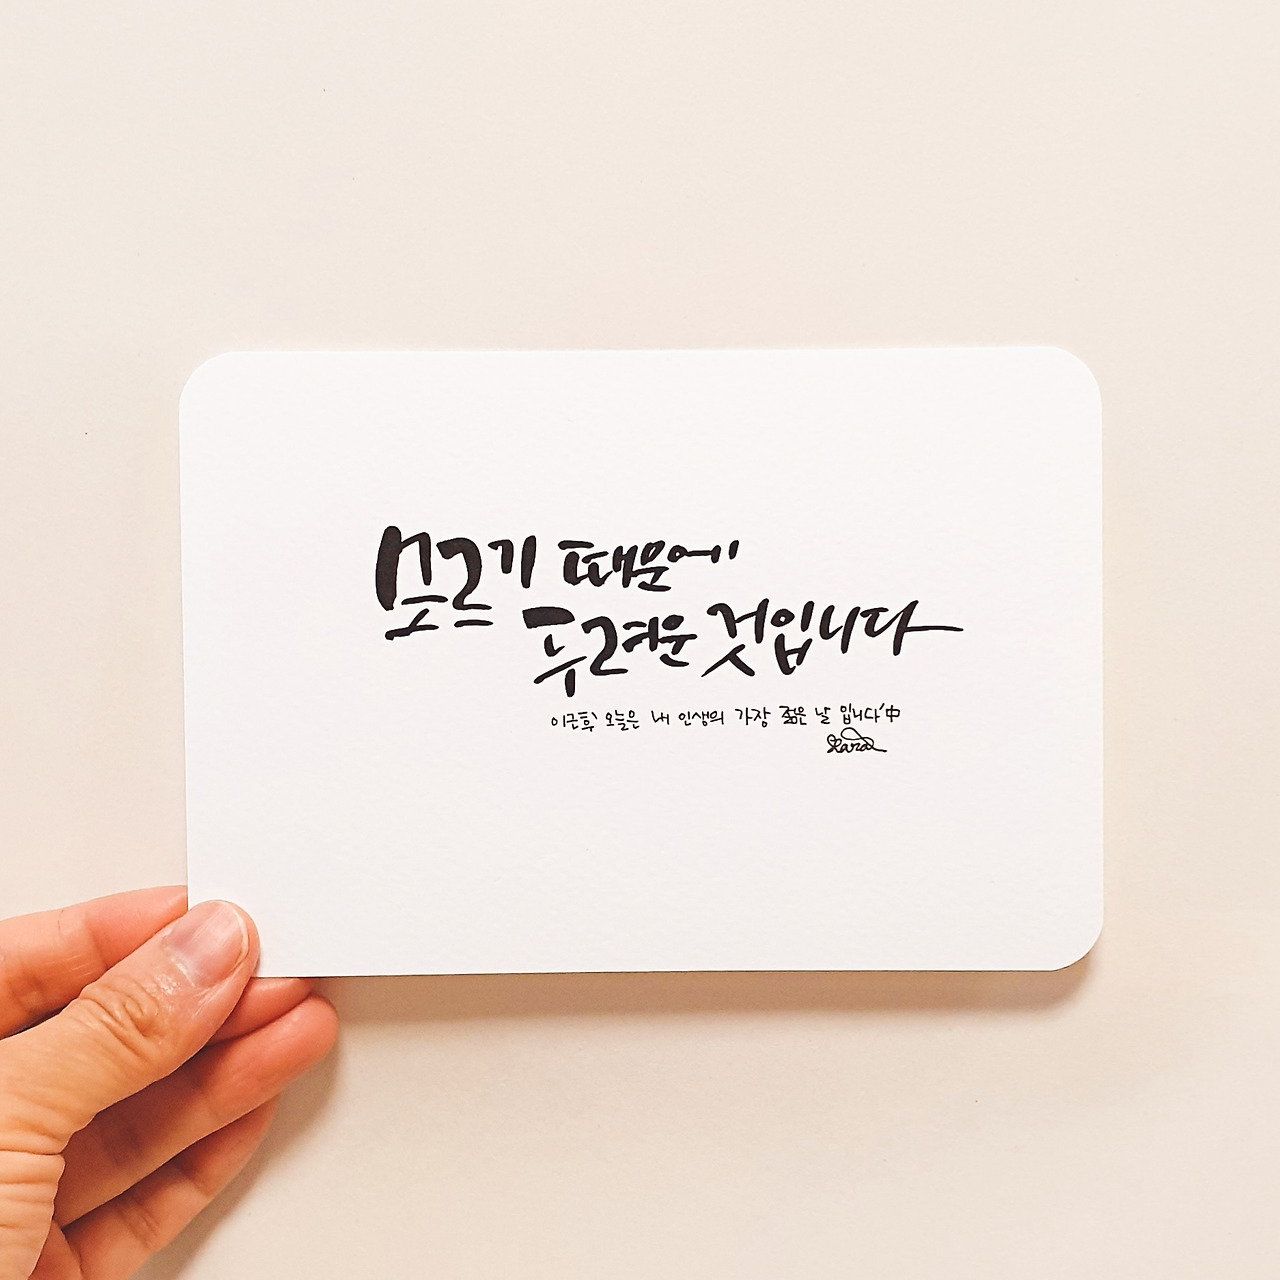 모르기 때문에
두려운 것입니다
이근후, '오늘은 내 인생의 가장 젊은 날 입니다' 中